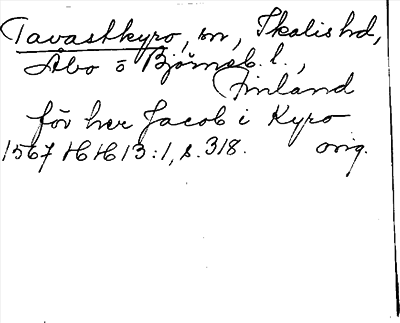 Tavastkyro, sn, Ikalis hd,
Åbo o Björneb. l.,
Finland
för her Jacob i Kyro
1567 16 16 13:1, s. 318. orig.